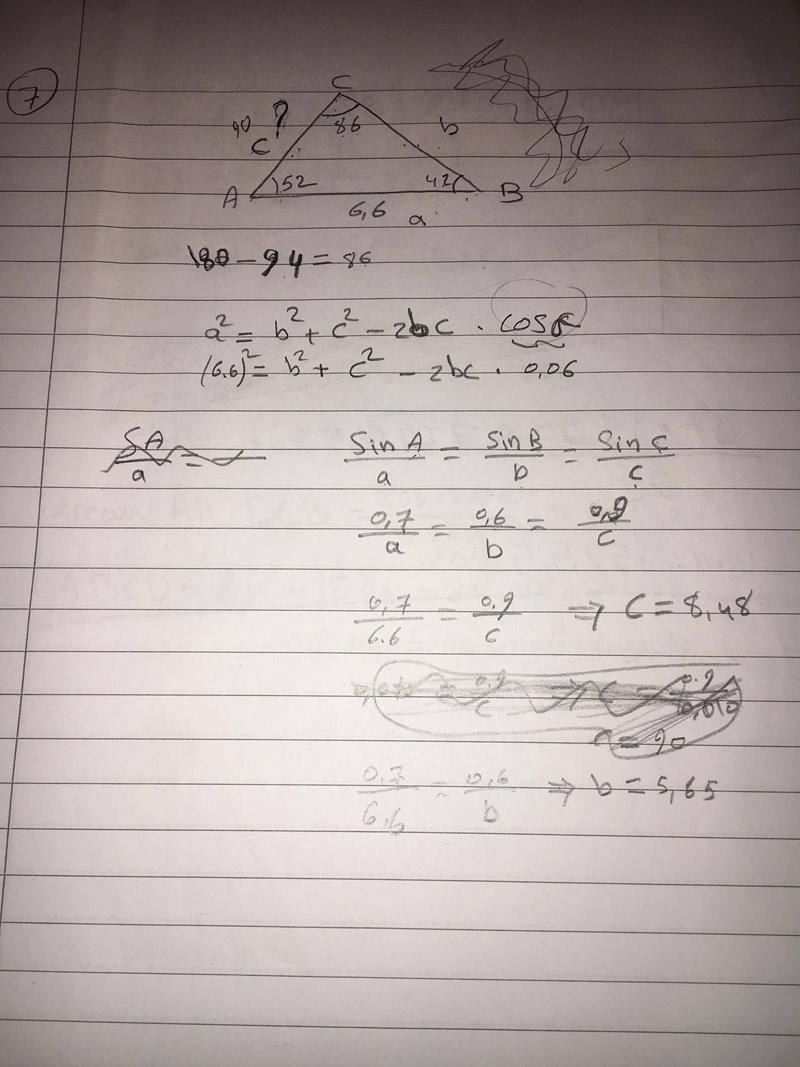 7
C
90 ? 86 b
c
A 52 42 B
6,6 a
180 - 94 = 86
a² = b² + c² - 2bc . cos
(6.6)² = b² + c² - 2bc . 0,06
SA/a =
Sin A/a = Sin B/b = Sin C/c
0,7/a = 0,6/b = 0,9/c
0,7/6.6 = 0.9/c ⇒ C = 8,48
= 0.9/c ⇒ C = 0.9/0,010
= 90
0.7/6,6 = 0,6/b ⇒ b = 5,65